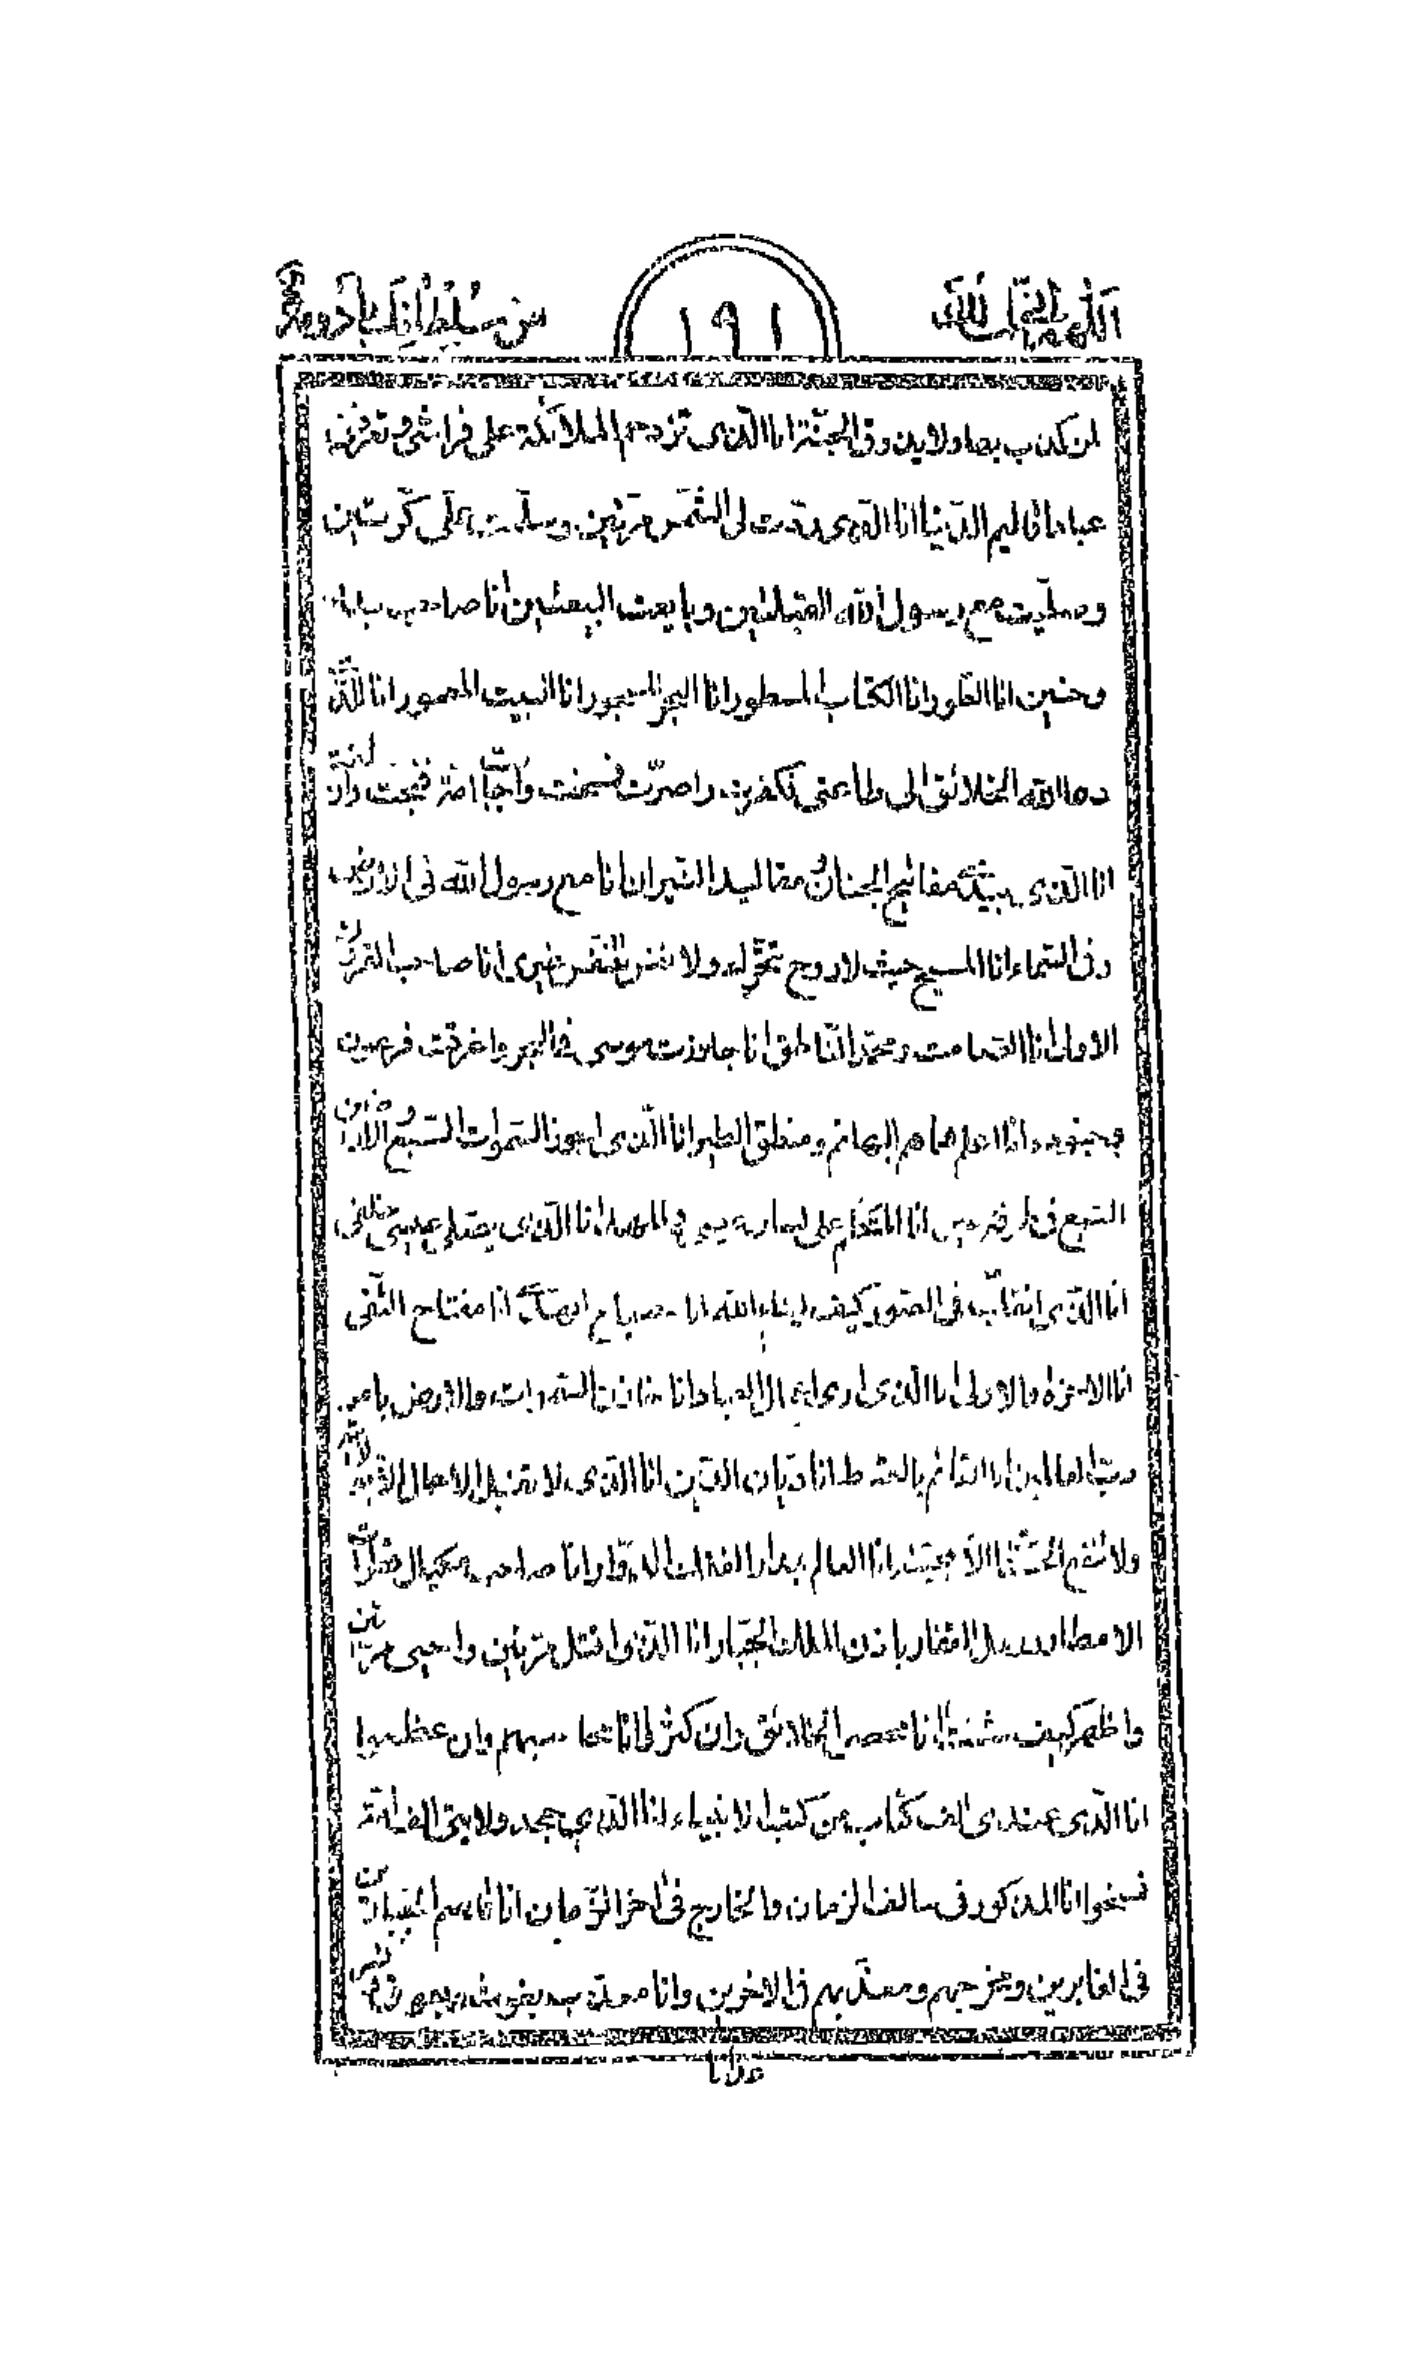 ١٩١
لمن كذب بها ولا ين وفى الجنة انا الذى تزدحم الملائكة على فراشى وتعرفنى
عباد اقاليم الدنيا انا الذى ردت لى الشمس مرتين وسلمت على كرتين
وصليت مع رسول الله القبلتين وبايعت البيعتين انا صاحب بدر
وحنين انا الطور انا الكتاب المسطور انا البحر المسجور انا البيت المعمور انا الذى
دعا الله الخلائق الى طاعتى فكفرت واصرت فمسخت واجابت امة فنجت وازلفت
انا الذى بيدى مفاتيح الجنان ومقاليد النيران انا مع رسول الله فى الارض
وفى السماء انا المسيح حيث لا روح تتحرك ولا نفس تتنفس غيرى انا صاحب القرون
الاولى انا الصامت ومحمد الناطق انا جاوزت موسى فى البحر واغرقت فرعون
وجنوده وانا اعلم هماهم البهائم ومنطق الطير انا الذى اجوز السموات السبع والارضين
السبع فى طرفة عين انا المتكلم على لسان عيسى فى المهد انا الذى يصلى عيسى خلفى
انا الذى انقلب فى الصور كيف يشاء الله انا مصباح الهدى انا مفتاح التقى
انا الاخرة والاولى انا الذى ارى اعمال العباد انا خازن السموات والارض بامر
رب العالمين انا القائم بالقسط انا ديان الدين انا الذى لا تقبل الاعمال الا بولايتى
ولا تنفع الحسنات الا بحبى انا العالم بمدار الفلك الدوار انا صاحب مكيال قطرات
الامطار ورمل القفار باذن الملك الجبار انا الذى اقتل مرتين واحيى مرتين
واظهر كيف شئت انا محصى الخلائق وان كثروا انا محاسبهم وان عظموا
انا الذى عندى الف كتاب من كتب الانبياء انا الذى جحد ولايتى الف امة
فمسخوا انا المذكور فى سالف الزمان والخارج فى اخر الزمان انا قاصم الجبارين
فى الغابرين ومخرجهم ومعذبهم فى الاخرين وانا معذب يغوث ويعوق ونسر